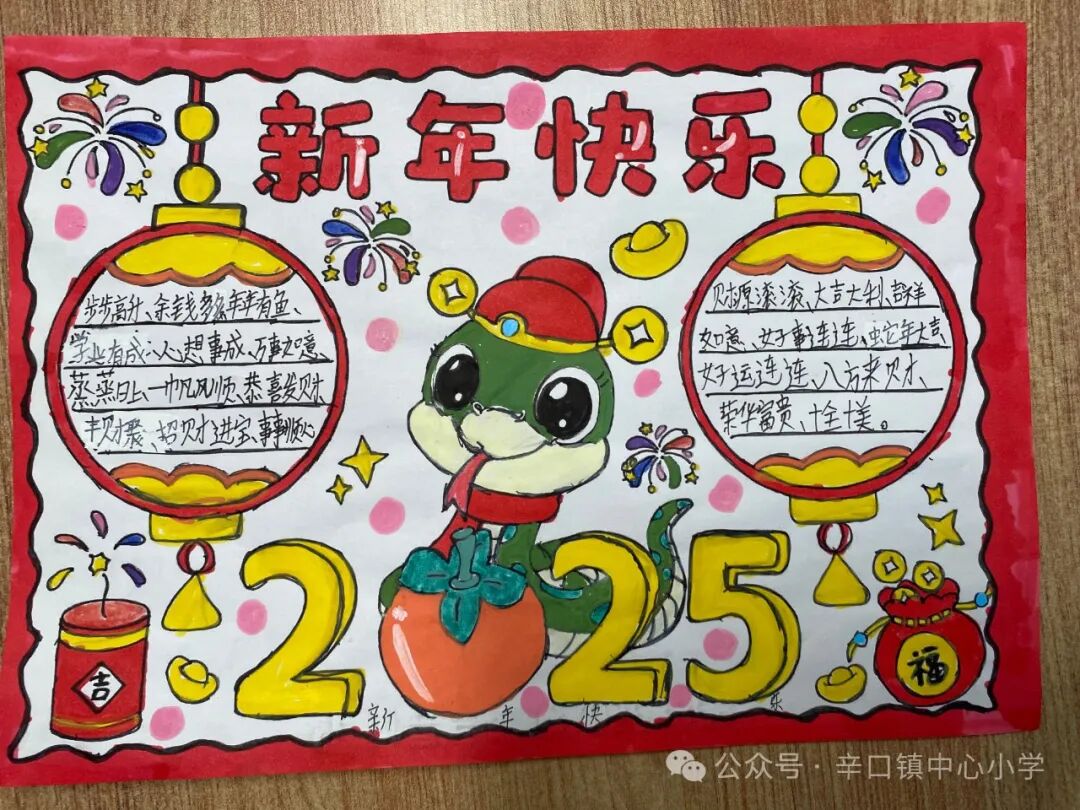 新年快乐
步步高升、余钱多多年年有鱼、
学业有成心想事成、万事如意、
蒸蒸日上、一帆风顺、恭喜发财、
丰财聚、招财进宝、事事顺心
财源滚滚、大吉大利、吉祥
如意、好事连连、蛇年大吉
好运连连、八方来财、
荣华富贵、十全十美。
2 25
吉
福
新 年 快 乐
公众号·辛口镇中心小学